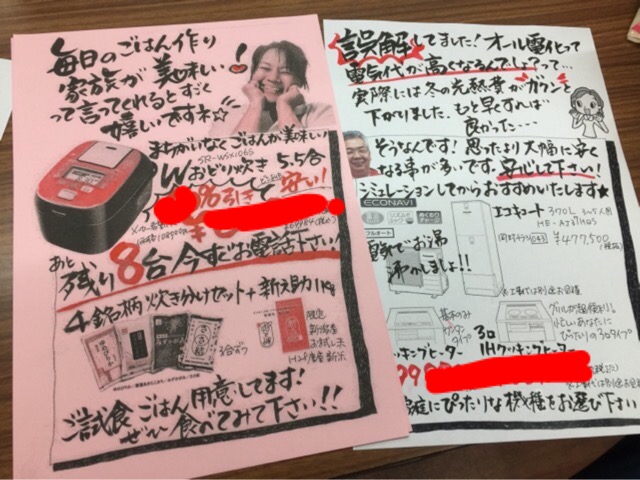 毎日のごはん作り
家族が美味しい!
って言ってくれるとすごく
嬉しいですネ☆
まちがいなくごはんが美味しい
SR-WSX106S
Wおどり炊き 5.5合
%引き
安い!
あと
残り8台今すぐお電話下さい!
4銘柄炊き分けセット+新之助1kg
3合ずつ
ご試食ごはん用意してます!
ぜひ食べてみて下さい!!
誤解してました!オール電化って
電気代が高くなるんでしょ?って…
実際には冬の光熱費がガクンと
下がりました。もっと早くすれば
良かった…
そうなんです!思ったより大幅に安く
なる事が多いです。安心して下さい!
シミュレーションしてからおすすめいたします
ECONAVI
フルオート
エコキュート 370L 3~5人用
¥477,500
電気でお湯
沸かしましょ!!
基本のみ
カンタン
タイプ
忙しいあなたに
ぴったりの
ッキングヒーター
3口
IHクッキングヒーター
家庭にぴったりな機種をお選び下さい